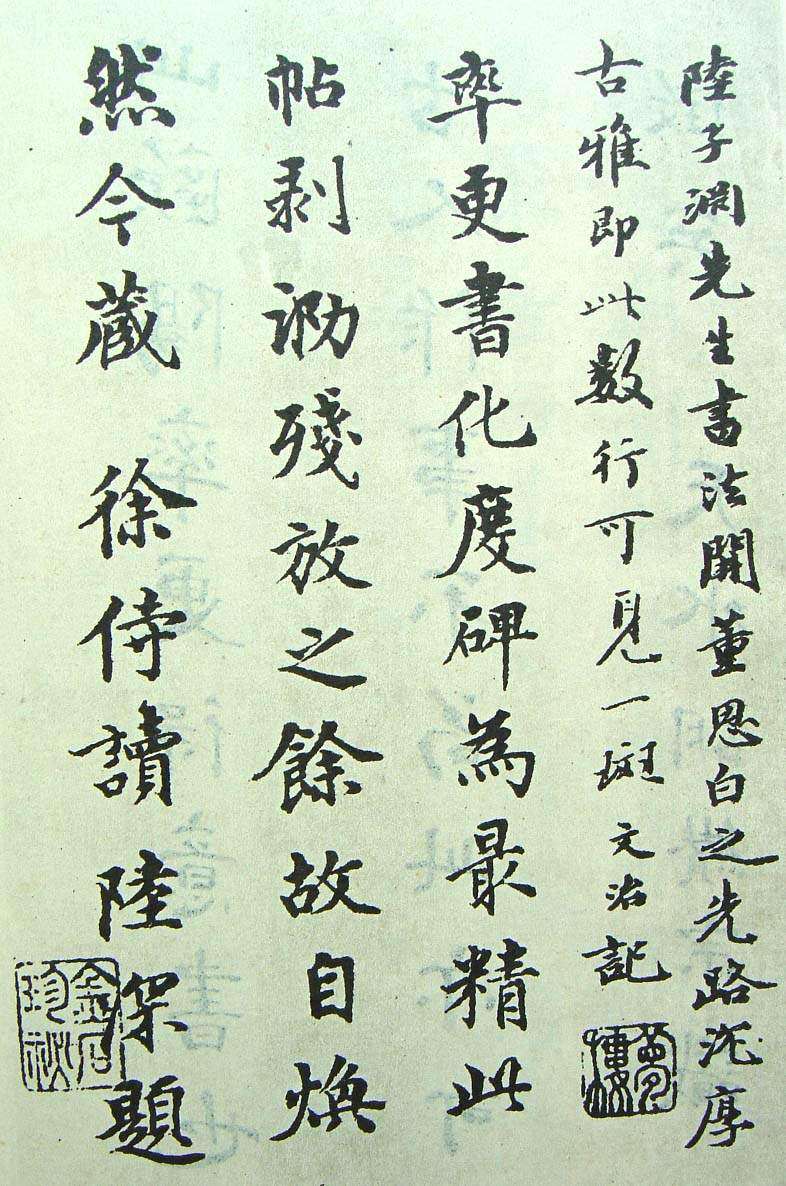 陸子淵先生書法開董思白之先路沉厚
古雅即此數行可見一斑文治記
夢樓
率更書化度碑為最精此
帖剥泐殘放之餘故自煥
然今藏 徐侍讀陸深題
金石
珍秘